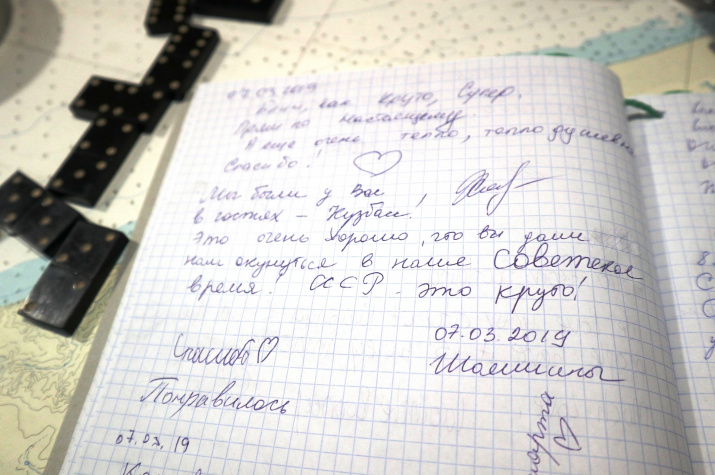 07.03.2019
как круто, Супер.
Прям по настоящему
А еще очень тепло, тепло душевно
Спасибо!
Мы были у Вас
в гостях - Кузбасс!
Это очень хорошо, что вы дали
нам окунуться в наше Советское
время! СССР - это круто!
07.03.2019
Спасибо
Шамшины
Понравилось
07.03.19
марта